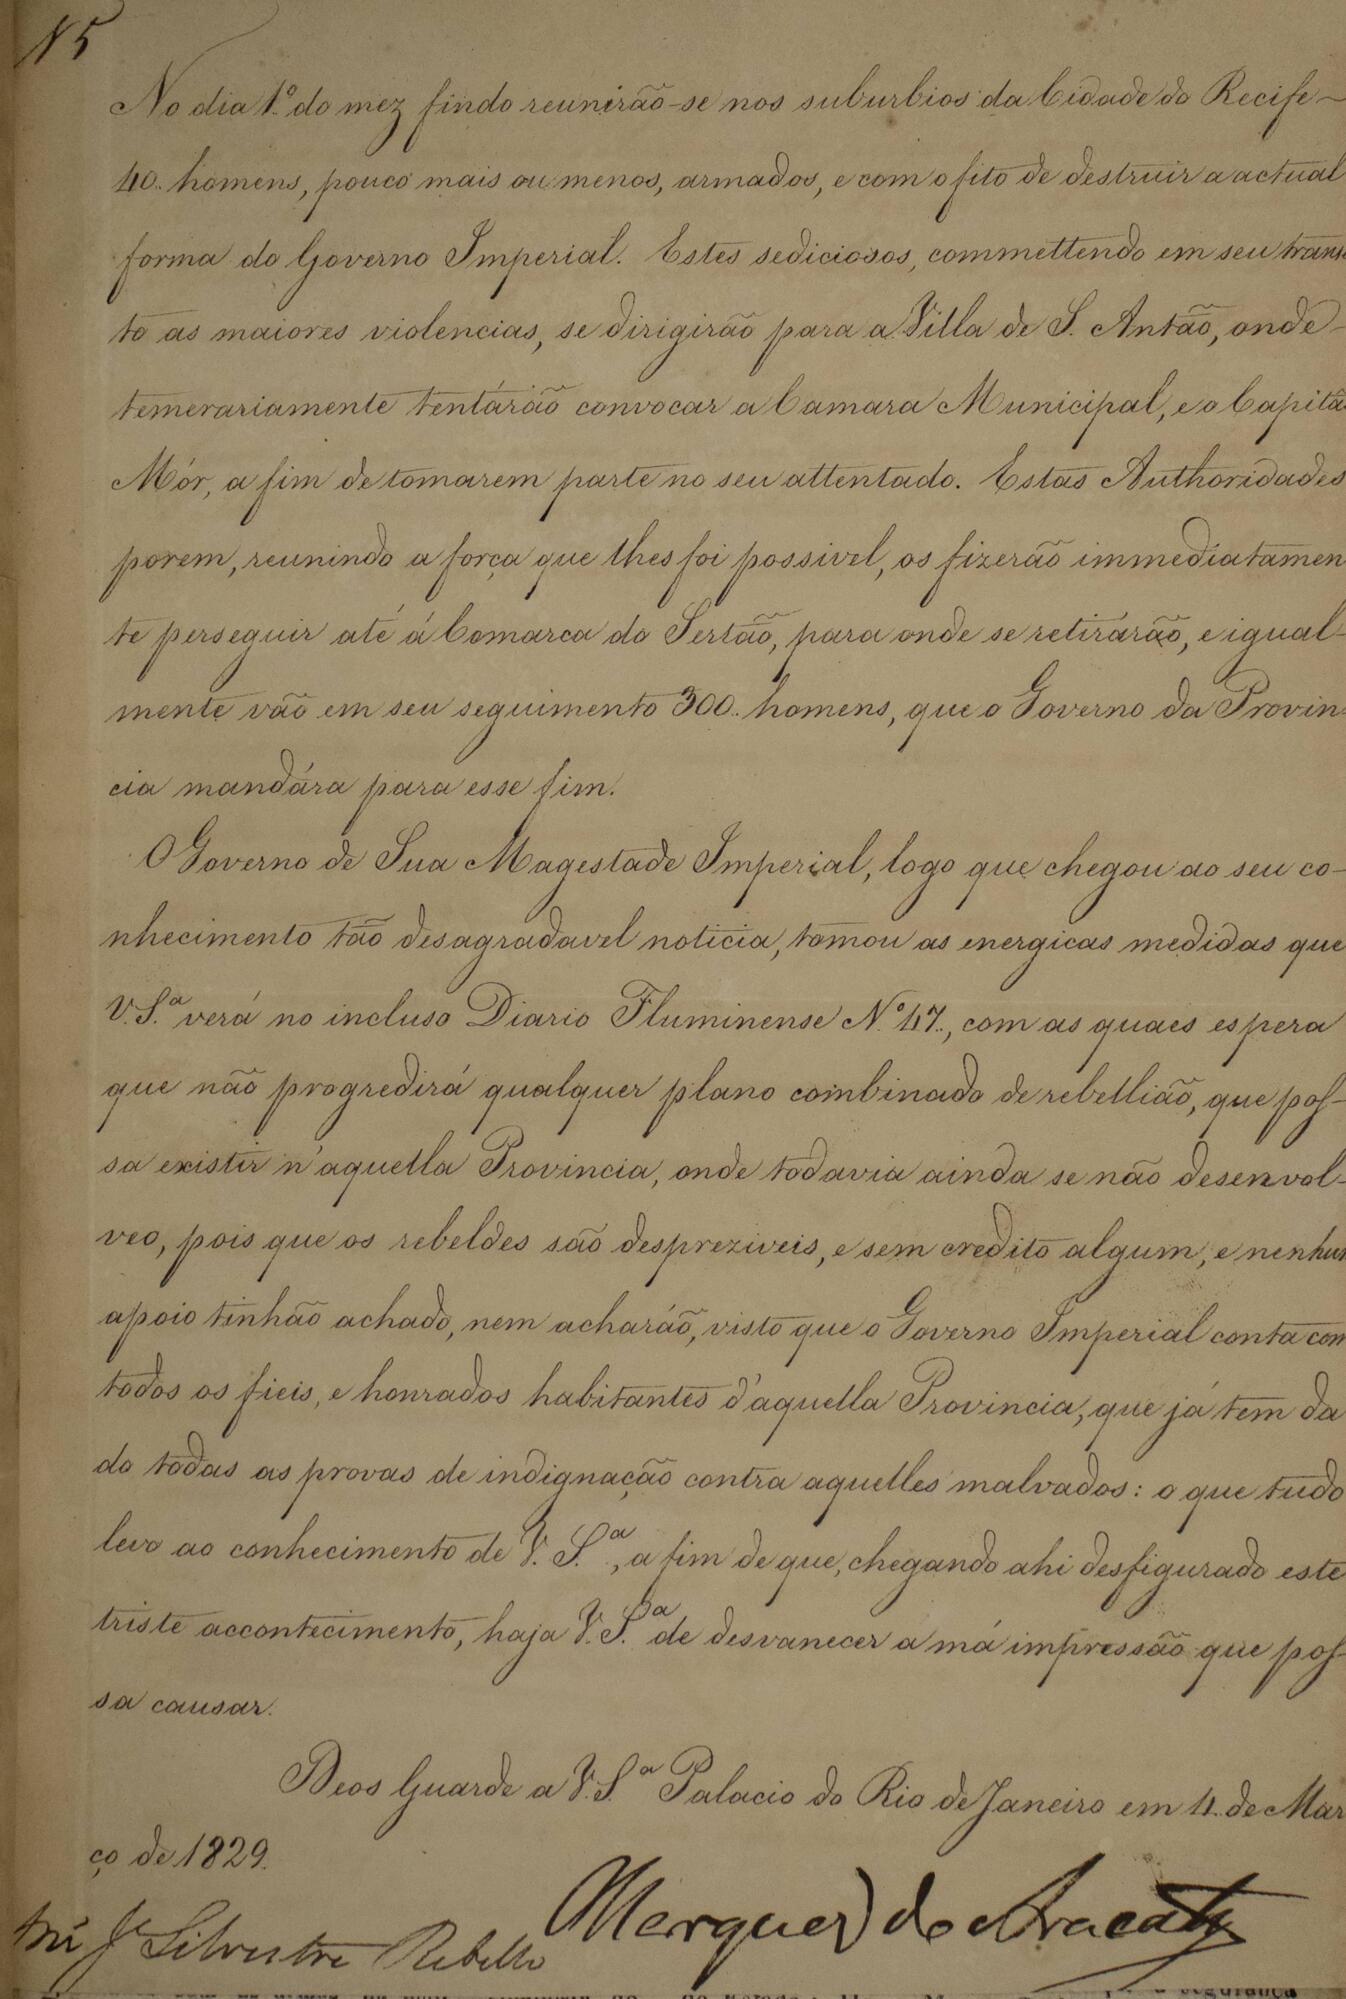 N 5
No dia 1º do mez findo reunirão-se nos suburbios da Cidade do Recife
40. homens, pouco mais ou menos, armados, e com o fito de destruir a actual
forma do Governo Imperial. Estes sediciosos, commettendo em seu transi
to as maiores violencias, se dirigirão para a Villa de S. Antão, onde
temerariamente tentárão convocar a Camara Municipal, e o Capitã
Mór, a fim de tomarem parte no seu attentado. Estas Authoridades
porem, reunindo a força que lhes foi possivel, os fizerão immediatamen
te perseguir até á Comarca do Sertão, para onde se retirárão, e igual-
mente vão em seu seguimento 300. homens, que o Governo da Provin-
cia mandára para esse fim.
O Governo de Sua Magestade Imperial, logo que chegou ao seu co-
nhecimento tão desagradavel noticia, tomou as energicas medidas que
V. S.ª verá no incluso Diario Fluminense Nº 47., com as quaes espera
que não progredirá qualquer plano combinado de rebellião, que pos-
sa existir n'aquella Provincia, onde todavia ainda se não desenvol-
veo, pois que os rebeldes são despreziveis, e sem credito algum, e nenhum
apoio tinhão achado, nem acharáõ, visto que o Governo Imperial conta com
todos os fieis, e honrados habitantes d'aquella Provincia, que já tem da
do todas as provas de indignação contra aquelles malvados: o que tudo
levo ao conhecimento de V. S.ª, a fim de que, chegando ahi desfigurado este
triste accontecimento, haja V. S.ª de desvanecer a má impressão que pos-
sa causar.
Deos Guarde a V. S.ª Palacio do Rio de Janeiro em 4. de Mar
ço de 1829.
Marquez de Aracaty
Silvestre Rebello
segurança